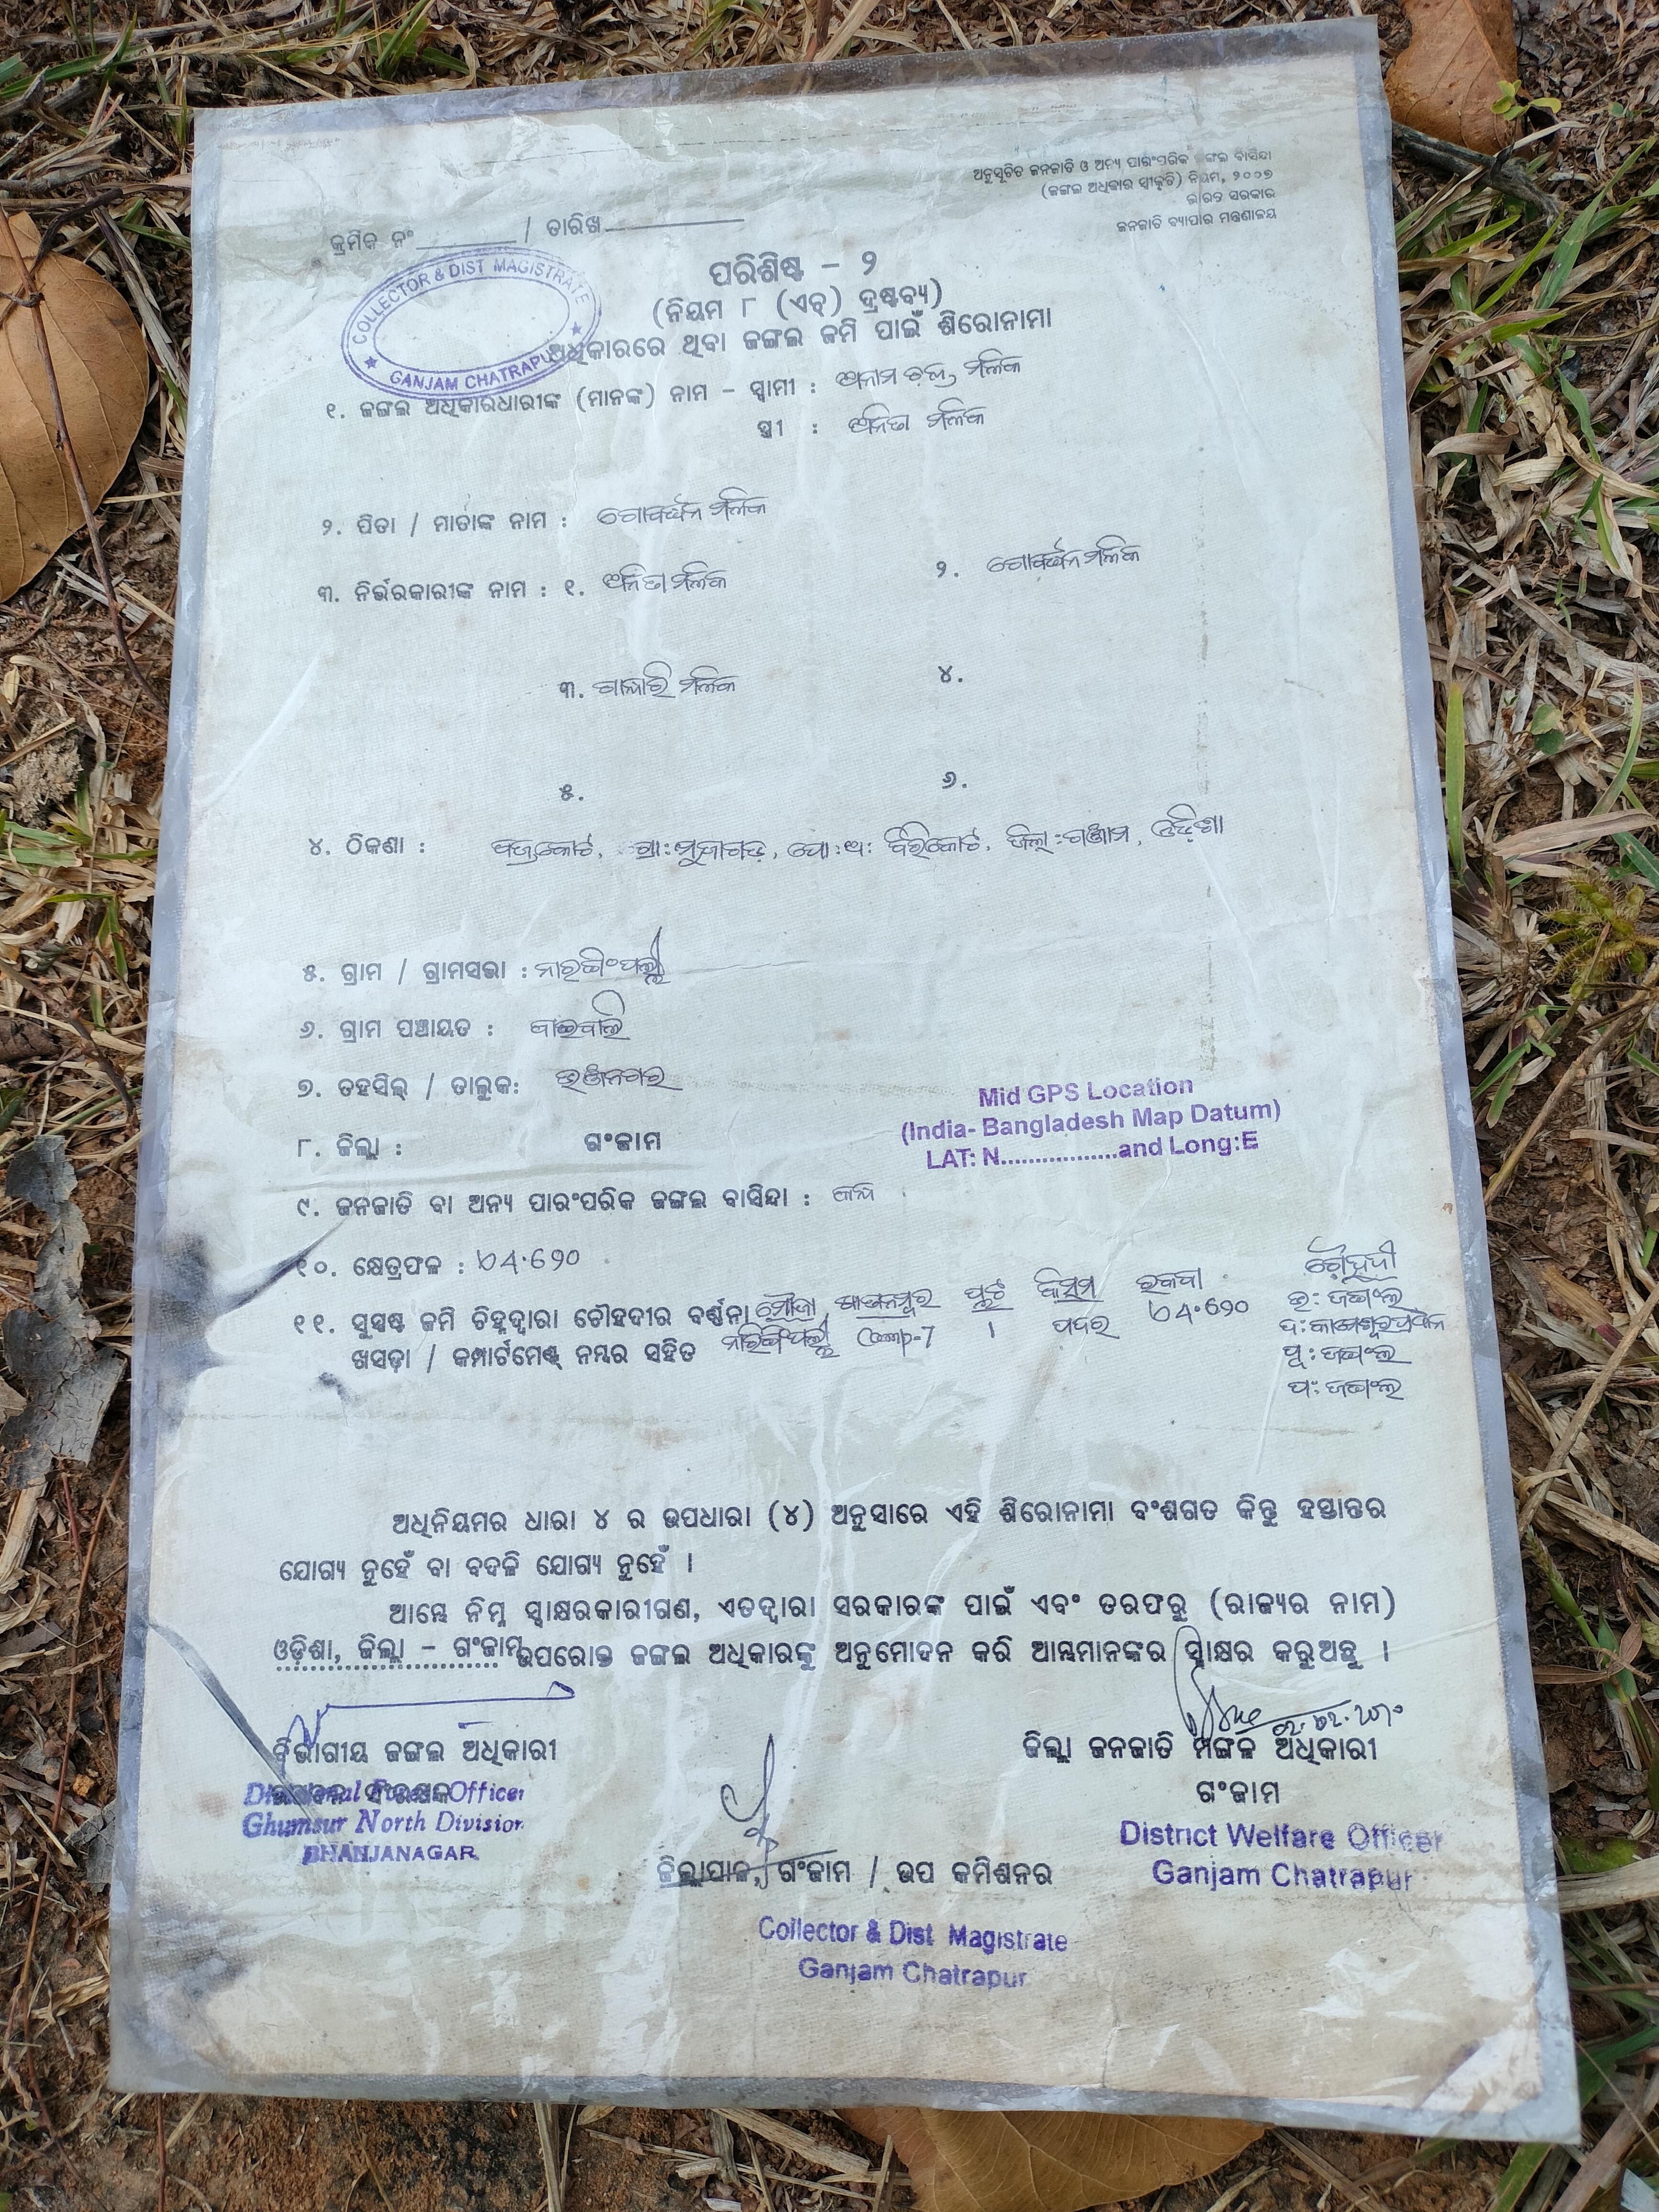 ଅନୁସୂଚିତ ଜନଜାତି ଓ ଅନ୍ୟ ପାରଂପରିକ ଜଙ୍ଗଲ ବାସିନ୍ଦା
(ଜଙ୍ଗଲ ଅଧିକାର ସ୍ୱୀକୃତି) ନିୟମ, ୨୦୦୭
ଭାରତ ସରକାର
ଜନଜାତି ବ୍ୟାପାର ମନ୍ତ୍ରଣାଳୟ
କ୍ରମିକ ନଂ ________ / ତାରିଖ ___________
COLLECTOR & DIST MAGISTRATE
GANJAM CHATRAPUR
ପରିଶିଷ୍ଟ – ୨
(ନିୟମ ୮ (ଏଚ୍) ଦ୍ରଷ୍ଟବ୍ୟ)
ଅଧିକାରରେ ଥିବା ଜଙ୍ଗଲ ଜମି ପାଇଁ ଶିରୋନାମା
୧. ଜଙ୍ଗଲ ଅଧିକାରଧାରୀଙ୍କ (ମାନଙ୍କ) ନାମ – ସ୍ୱାମୀ : ମଲିକ
ସ୍ତ୍ରୀ : ଅନିତା ମଲିକ
୨. ପିତା / ମାତାଙ୍କ ନାମ : ଗୋବର୍ଦ୍ଧନ ମଲିକ
୩. ନିର୍ଭରକାରୀଙ୍କ ନାମ : ୧. ଅନିତା ମଲିକ ୨. ଗୋବର୍ଦ୍ଧନ ମଲିକ
୩. ମଲିକ ୪.
୫. ୬.
୪. ଠିକଣା : ଜିଲ୍ଲା : ଗଞ୍ଜାମ, ଓଡ଼ିଶା
୫. ଗ୍ରାମ / ଗ୍ରାମସଭା :
୬. ଗ୍ରାମ ପଞ୍ଚାୟତ :
୭. ତହସିଲ୍ / ତାଲୁକ: ଭଞ୍ଜନଗର
୮. ଜିଲ୍ଲା : ଗଂଜାମ
Mid GPS Location
(India- Bangladesh Map Datum)
LAT: N.................and Long:E
୯. ଜନଜାତି ବା ଅନ୍ୟ ପାରଂପରିକ ଜଙ୍ଗଲ ବାସିନ୍ଦା :
୧୦. କ୍ଷେତ୍ରଫଳ :
୧୧. ସୁସ୍ପଷ୍ଟ ଜମି ଚିହ୍ନଦ୍ୱାରା ଚୌହଦୀର ବର୍ଣ୍ଣନା ମୌଜା ପ୍ଲଟ କିସମ ରକବା ଚୌହଦୀ
ଖସଡ଼ା / କମ୍ପାର୍ଟମେଣ୍ଟ ନମ୍ବର ସହିତ Comp-7 1 ପଦର
ଉ: ଜଙ୍ଗଲ
ଦ:
ପୂ: ଜଙ୍ଗଲ
ପ: ଜଙ୍ଗଲ
ଅଧିନିୟମର ଧାରା ୪ ର ଉପଧାରା (୪) ଅନୁସାରେ ଏହି ଶିରୋନାମା ବଂଶଗତ କିନ୍ତୁ ହସ୍ତାନ୍ତର
ଯୋଗ୍ୟ ନୁହେଁ ବା ବଦଳି ଯୋଗ୍ୟ ନୁହେଁ ।
ଆମ୍ଭେ ନିମ୍ନ ସ୍ୱାକ୍ଷରକାରୀଗଣ, ଏତଦ୍ୱାରା ସରକାରଙ୍କ ପାଇଁ ଏବଂ ତରଫରୁ (ରାଜ୍ୟର ନାମ)
ଓଡ଼ିଶା, ଜିଲ୍ଲା – ଗଂଜାମ ଉପରୋକ୍ତ ଜଙ୍ଗଲ ଅଧିକାରଙ୍କୁ ଅନୁମୋଦନ କରି ଆମ୍ଭମାନଙ୍କର ସ୍ୱାକ୍ଷର କରୁଅଛୁ ।
ବିଭାଗୀୟ ଜଙ୍ଗଲ ଅଧିକାରୀ
Divisional Forest Officer
Ghumsur North Division
BHANJANAGAR
ଜିଲ୍ଲା ଜନଜାତି ମଙ୍ଗଳ ଅଧିକାରୀ
ଗଂଜାମ
District Welfare Officer
Ganjam Chatrapur
ଜିଲ୍ଲାପାଳ, ଗଂଜାମ / ଉପ କମିଶନର
Collector & Dist Magistrate
Ganjam Chatrapur